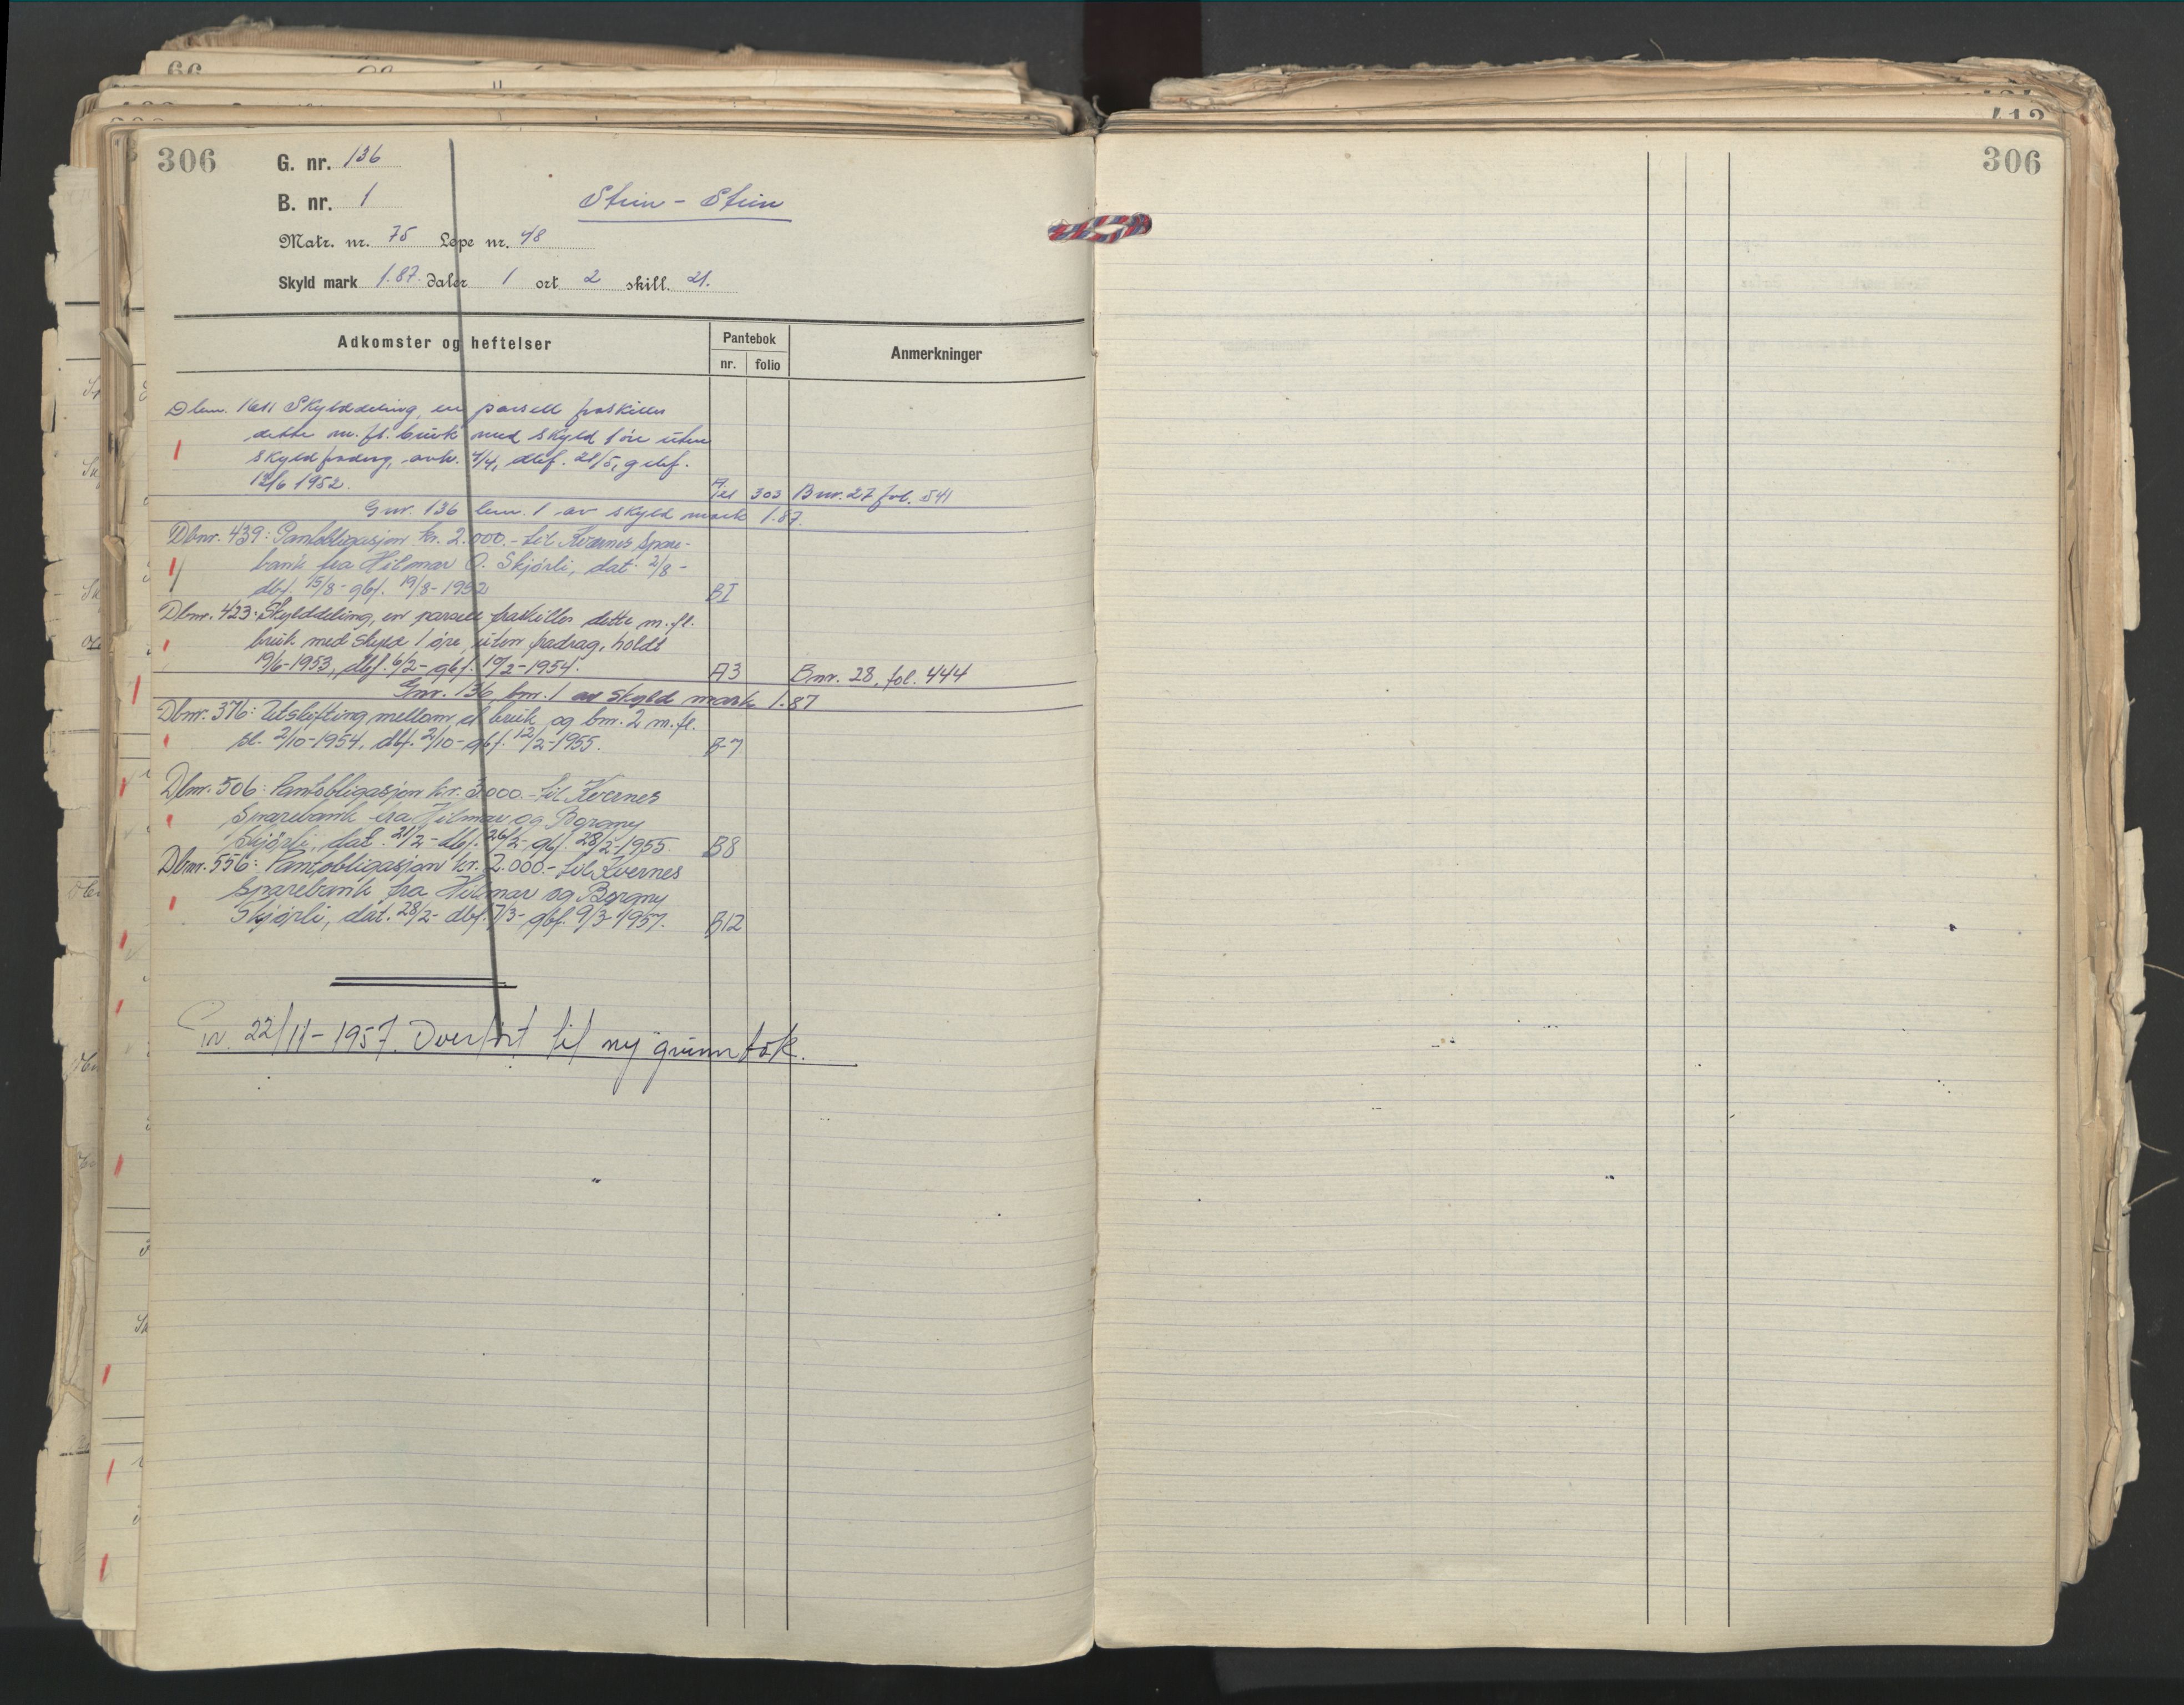 306
G. nr. 136
B. nr. 1
Stein - Stein
Matr. nr. 75 Løpe nr. 48
Skyld mark 1.87. daler 1 ort 2 skill. 21.
Adkomster og heftelser
Pantebok
nr. folio
Anmerkninger
Dbnr. 1611 Skylddeling, en parsell fraskilles
dette m. fl. bruk med skyld 1 øre uten
skyldfradrag, avh. 4/4, dbf. 21/5, gbf.
12/6 1952. 303 Bnr. 27 fol. 541
Gnr. 136 bnr. 1 av skyld mark 1.87.
Dbnr. 439: Pantobligasjon kr. 2.000.- til Kvernes Spare-
bank fra Hilmar O. Skjørli, dat. 2/8 -
dbf. 15/8 - gbf. 19/8 - 1952 BI
Dbnr. 423: Skylddeling, en parsell fraskilles dette m. fl.
bruk med skyld 1 øre, uten fradrag, holdt
19/6-1953, dbf. 6/2 - gbf. 10/2-1954. A3 Bnr. 28, fol. 444
Gnr. 136, bnr. 1 av skyld mark 1.87
Dbnr. 376: Utskifting mellom d. bruk og bnr. 2 m. fl.
sl. 2/10-1954, dbf. 2/10 - gbf. 12/2-1955. B7
Dbnr. 506: Pantobligasjon kr. 3000.- til Kvernes
Sparebank fra Hilmar og Borgny
Skjørli, dat. 21/2 - dbf. 26/2 - gbf. 28/2-1955. B8
Dbnr. 556: Pantobligasjon kr. 2.000.- til Kvernes
Sparebank fra Hilmar og Borgny
Skjørli, dat. 28/2 - dbf. 7/3 - gbf. 9/3-1957. B12
22/11-1957. Overført til ny grunnbok.
306